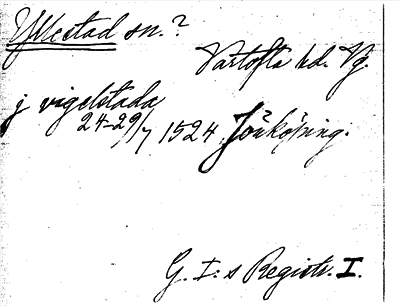 Yllestad sn.?
Vartofta hd. Vg.
j vigelstada
24-29/7 1524 Jönköping.
G. I:s Registr. I.